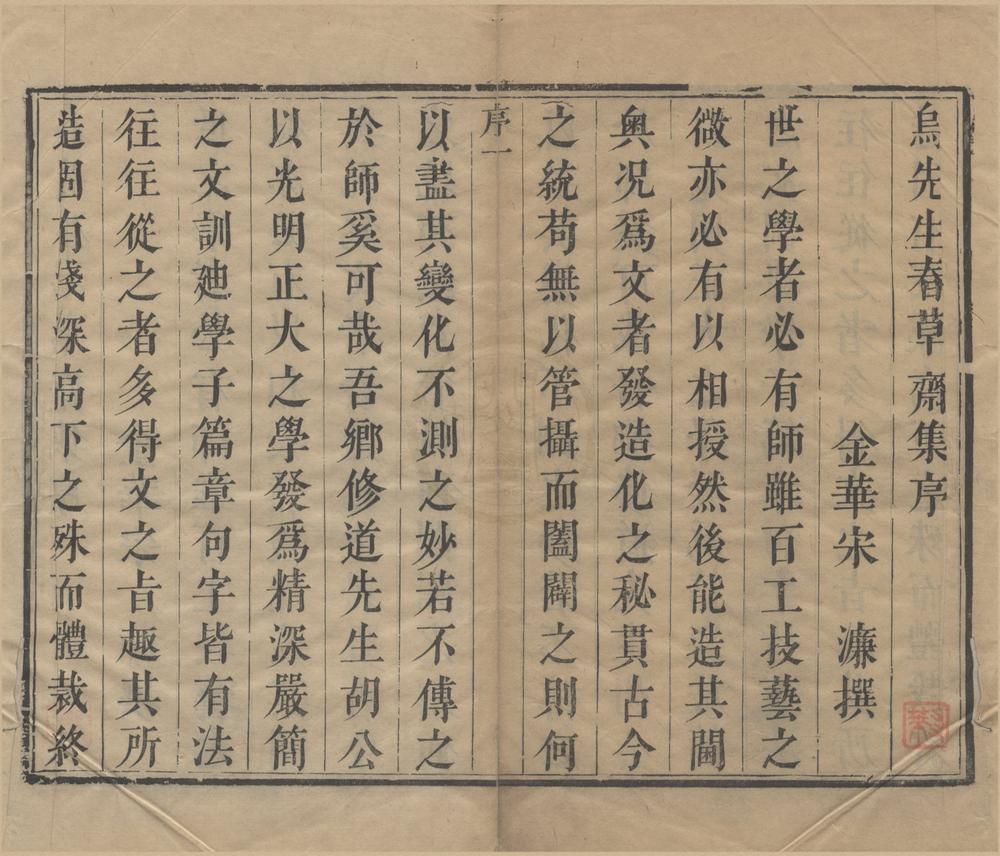 烏先生春草齋集序
金華宋　濂撰
世之學者必有師雖百工技藝之
微亦必有以相授然後能造其閫
奧况爲文者發造化之秘貫古今
之統苟無以管攝而闔闢之則何
序一
以盡其變化不測之妙若不傳之
於師奚可哉吾鄉修道先生胡公
以光明正大之學發爲精深嚴簡
之文訓廸學子篇章句字皆有法
徃徃從之者多得文之旨趣其所
造固有淺深高下之殊而體裁終